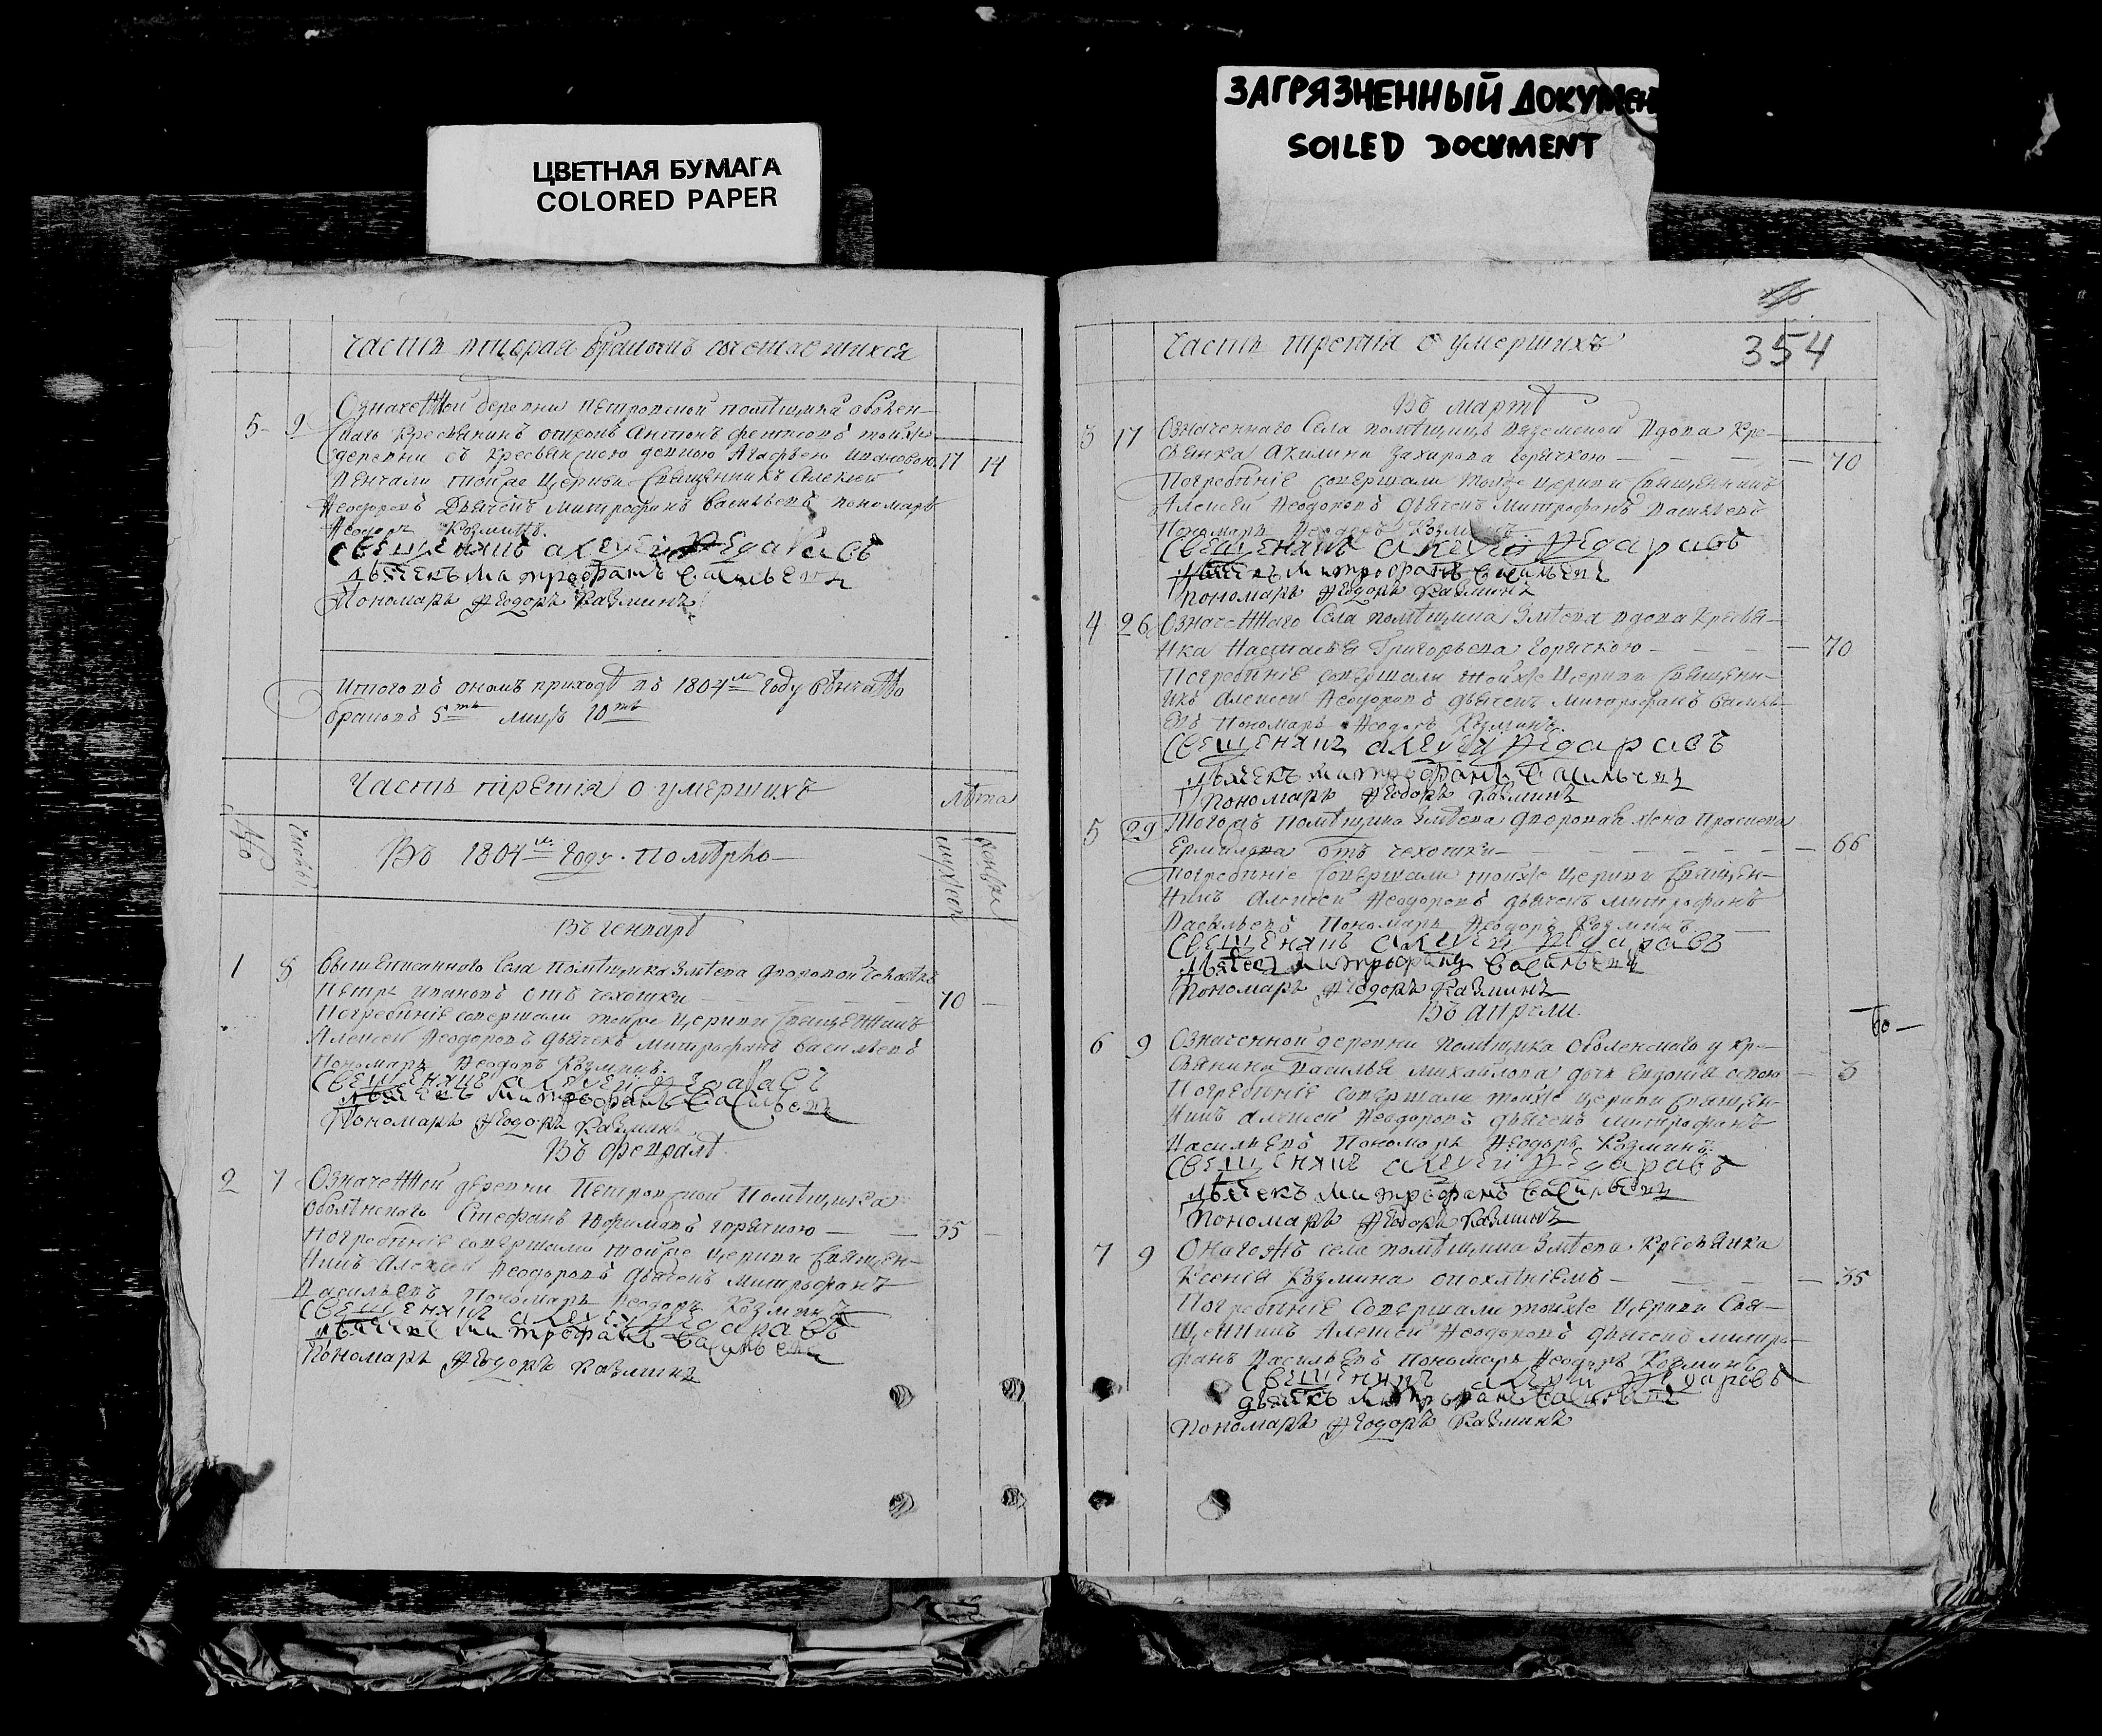 ЦВЕТНАЯ БУМАГА
COLORED PAPER
ЗАГРЯЗНЕННЫЙ ДОКУМЕН
SOILED DOCUMENT
часть вторая бракомъ сочетавшихся
5 9 Означенной деревни Петровской помѣщика Оболен-
скаго крестьянинъ отрокъ Антонъ тойже
деревни съ крестьянскою девкою Агафьею Ивановою 17 14
Венчали тойже церкви священникъ Алексей
Ѳеодоровъ дьячекъ Митрофанъ Васильевъ пономарь
Ѳеодоръ Козминъ
свещеникъ алексей Ѳедаравъ
дьячекъ митрофанъ васильевъ
Пономарь Ѳеодоръ Казминъ
Итого въ ономъ приходѣ въ 1804м году венчано
браковъ 5ть лицъ 10ть
Часть третія о умершихъ
лѣта
№ числы Въ 1804м году померло мужеск женска
Въ генварѣ
1 8 Вышеписанного села помѣщика Змѣева дворовой человѣкъ
Петръ Ивановъ отъ чехотки 70 —
Погребеніе совершали тойже церкви священникъ
Алексей Ѳеодоровъ дьячекъ Митрофанъ Васильевъ
Пономарь Ѳеодоръ Козминъ
свещеникъ алексей Ѳедаравъ
дьячекъ митрофанъ васильевъ
Пономарь Ѳеодоръ Казминъ
Въ февралѣ
2 7 Означенной деревни Петровской помѣщика
Оболенскаго Стефанъ Юфимовъ горячкою — 35 —
Погребеніе совершали тойже церкви священ-
никъ Алексей Ѳеодоровъ дьячекъ Митрофанъ
Васильевъ пономарь Ѳеодоръ Козминъ
свещеникъ алексей Ѳедаравъ
дьячекъ митрофанъ васильевъ
Пономарь Ѳеодоръ Казминъ
Часть третія о умершихъ 354
Въ мартѣ
3 17 Означенного села помѣщицы Вяземской вдова кре-
стьянка Акилина Захарова горячкою — 70
Погребеніе совершали тойже церкви священникъ
Алексей Ѳеодоровъ дьячекъ Митрофанъ Васильевъ
Пономарь Ѳеодоръ Козминъ
свещеникъ алексей Ѳедаравъ
дьячекъ митрофанъ васильевъ
пономарь Ѳеодоръ Казминъ
4 26 Означенного села помѣщика Змѣева вдова крестья-
нка Настасья Григорьева горячкою — 70
Погребеніе совершали тойже церкви священн-
икъ Алексей Ѳеодоровъ дьячекъ Митрофанъ Василь-
евъ пономарь Ѳеодоръ Козминъ
свещеникъ алексей Ѳедаравъ
дьячекъ митрофанъ васильевъ
Пономарь Ѳеодоръ Казминъ
5 29 Тогожъ помѣщика Змѣева дворовая жена Прасковья
Ермилова отъ чехотки — 66
Погребеніе совершали тойже церкви священ-
никъ Алексей Ѳеодоровъ дьячекъ Митрофанъ
Васильевъ Пономарь Ѳеодоръ Козминъ
свещеникъ алексей Ѳедаравъ
дьячекъ митрофанъ васильевъ
Пономарь Ѳеодоръ Казминъ
Въ апрели
6 9 Означенной деревни помѣщика Оболенскаго у кре-
стьянина Василья Михайлова дочь Евдокія оспою — 3
Погребеніе совершали тойже церкви священ-
никъ Алексей Ѳеодоровъ дьячекъ Митрофанъ
Васильевъ Пономарь Ѳеодоръ Козминъ
свещеникъ алексей Ѳедаравъ
дьячекъ митрофанъ васильевъ
Пономарь Ѳеодоръ Казминъ
7 9 Оногожъ села помѣщика Змѣева крестьянка
Ксенія Козмина — 35
Погребеніе совершали тойже церкви свя-
щенникъ Алексей Ѳеодоровъ дьячекъ Митро-
фанъ Васильевъ Пономарь Ѳеодоръ Козминъ
свещеникъ алексей Ѳедаровъ
дьячекъ митрофанъ васильевъ
Пономарь Ѳеодоръ Казминъ